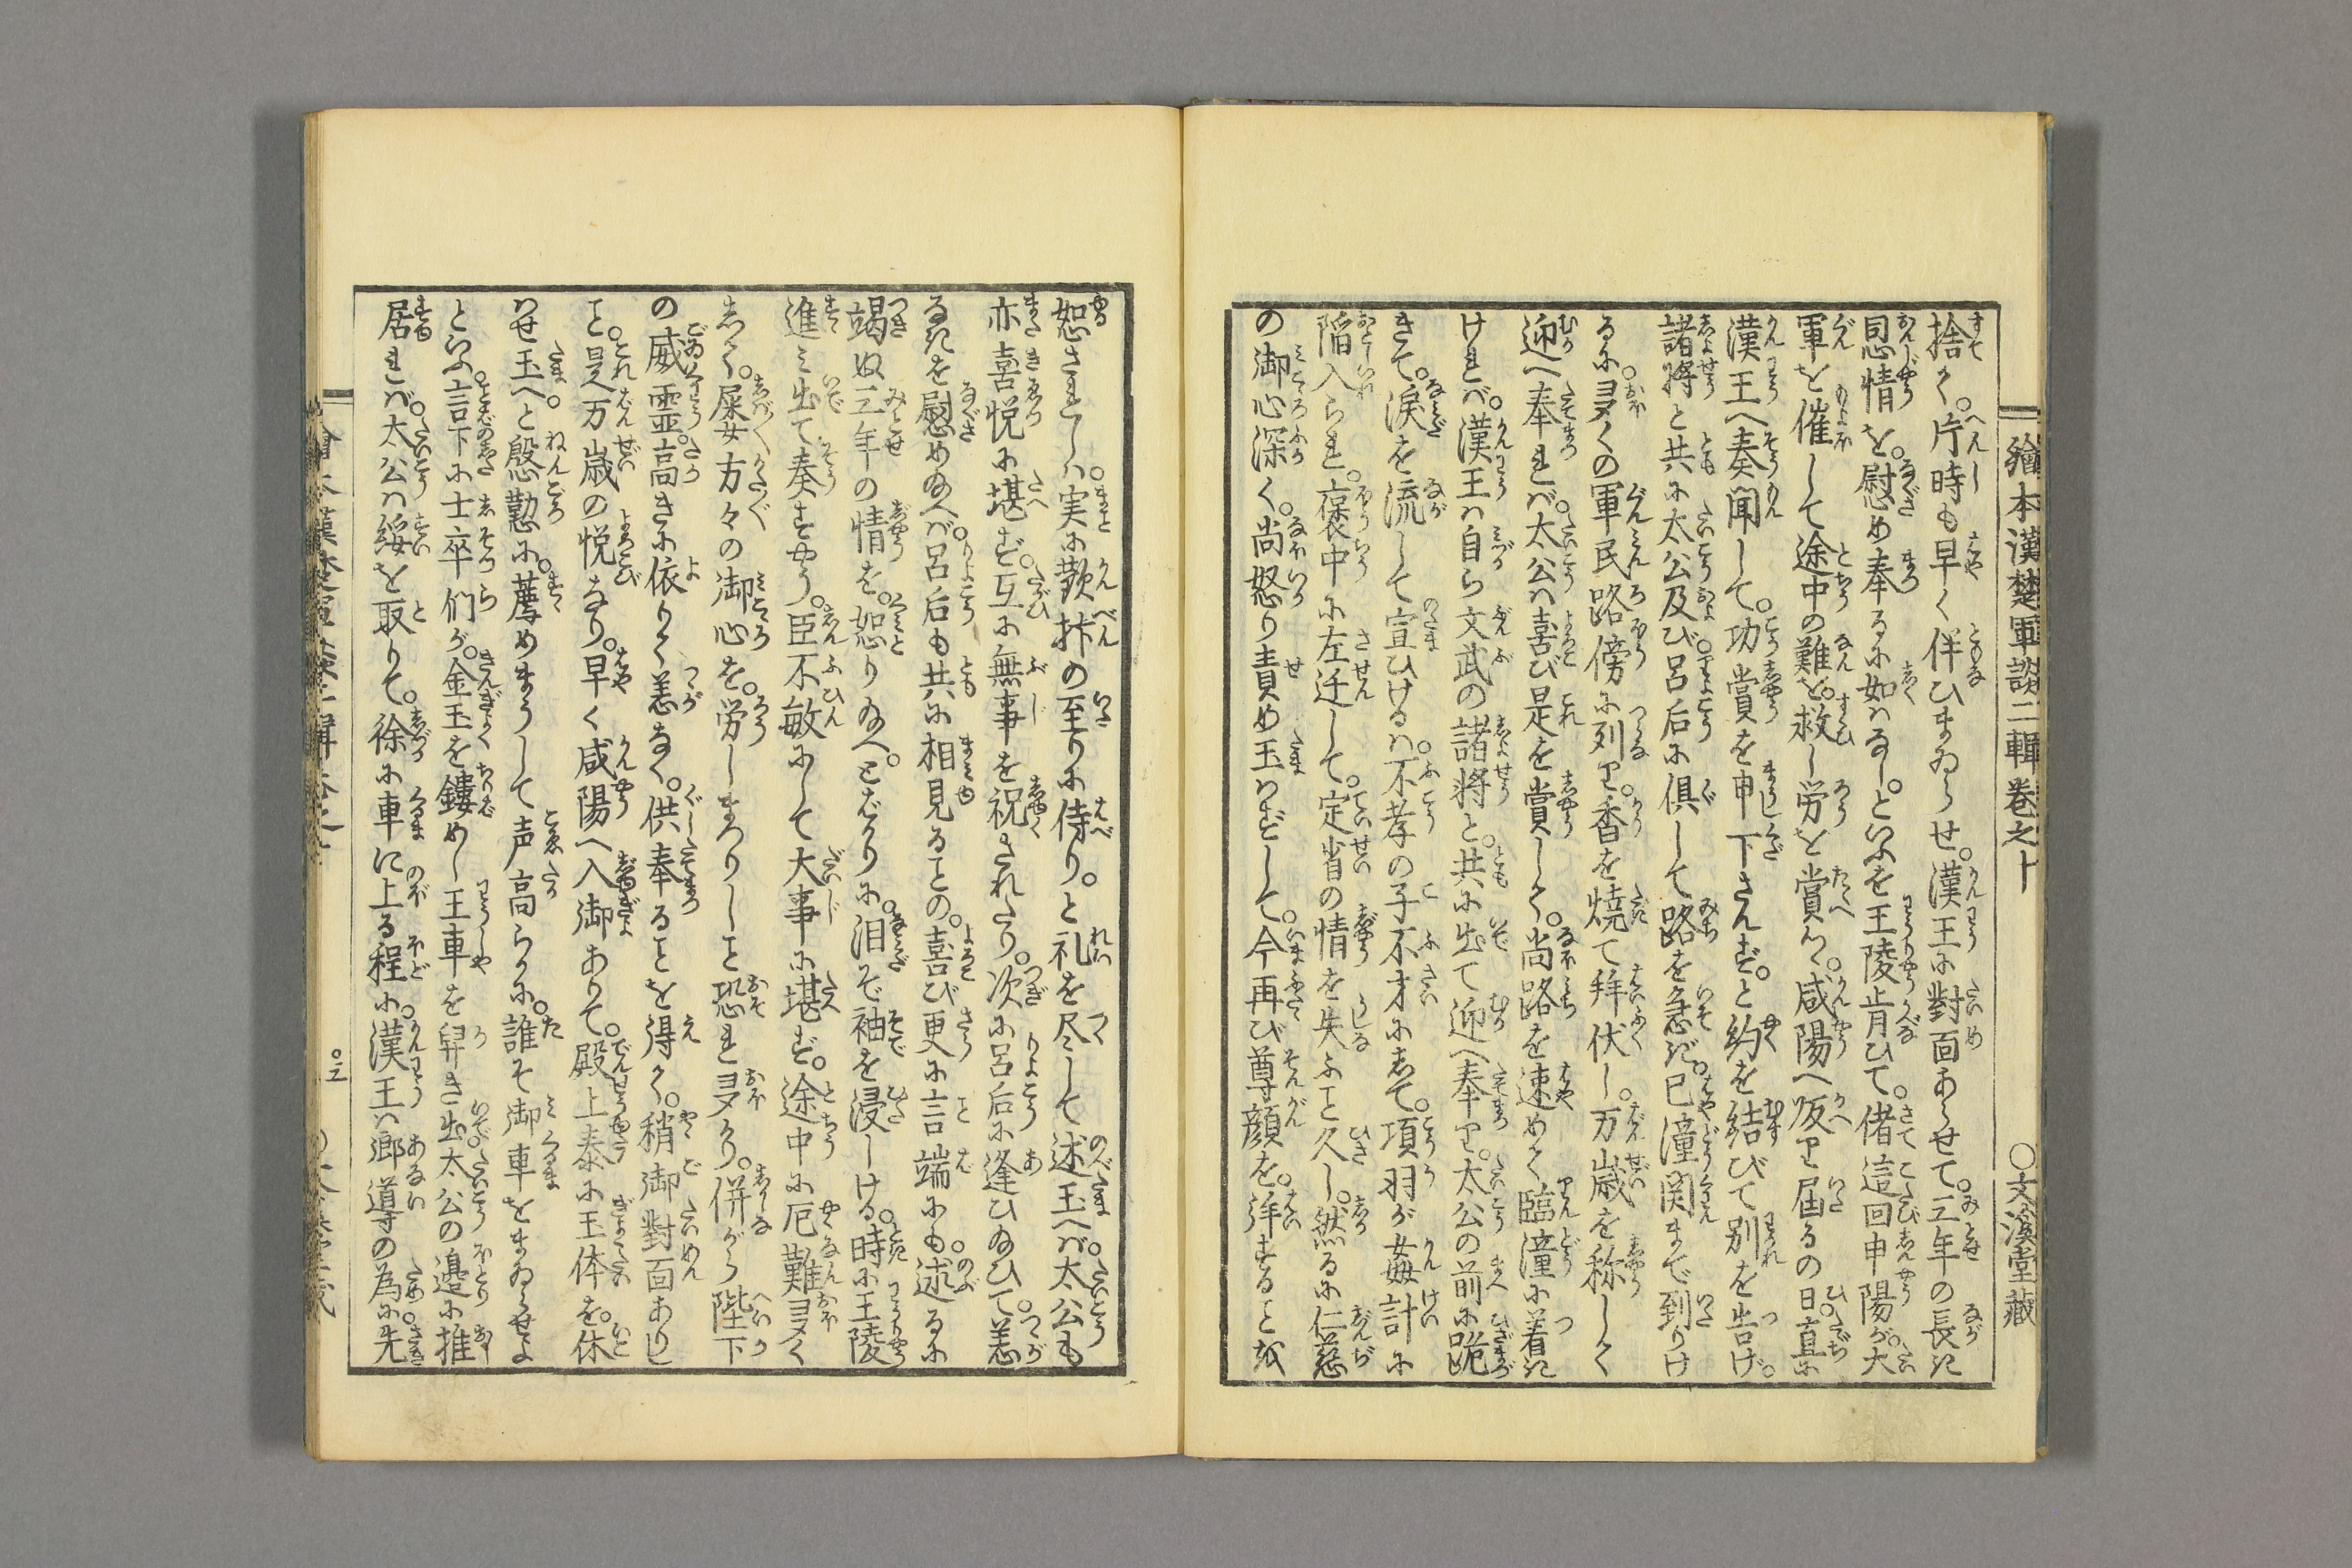 繪本漢楚軍談二輯卷之十　○文溪堂藏
捨て。片時も早く伴ひまゐらせ。漢王に對面あらせて。三年の長き
恩情を。慰め奉るに如はなし。といふを王陵肯ひて。偖這回申陽が。大
軍を催して途中の難を。救し労を賞へ。咸陽へ皈り届るの日。直に
漢王へ奏聞して。功賞を申下さんず。と約を結びて別を告げ。
諸将と共に太公及び呂后に倶して路を急ぎ。已潼関まで到りけ
るに。多くの軍民路傍に列り。香を焼て拜伏し。万歳を称して
迎へ奉れば。太公は喜び是を賞して。尚路を速めて臨潼に着き
ければ。漢王は自ら文武の諸将と。共に出て迎へ奉り。太公の前に跪
きて。涙を流して宣ひけるは。不孝の子不才にして。項羽が姦計に
陥入られ。襃中に左迁して。定省の情を失ふこと久し。然るに仁慈
の御心深く。尚怒り責め玉はずして。今再び尊顔を。拜することを
恕されしは。実に歡抃の至りに侍り。と礼を尽して述玉へば。太公も
亦喜悦に堪ず。互に無事を祝されたり。次に呂后に逢ひ給ひて。恙
なきを慰め給へば。呂后も共に相見ることの。喜び更に言端にも。述るに
竭ぬ三年の情を。恕り給へ。とばかりに。泪ぞ袖を浸しける。時に王陵
進み出て奏すやう。臣不敏にして大事に堪ず。途中に厄難多く
して。屡方々の御心を。労しまつりしこと恐れ多かり。併がら陛下
の威霊。高きに依りて恙なく。供奉ることを得て。稍御對面ありし
こと。是万歳の悦なり。早く咸陽へ入御ありて。殿上泰に玉体を。休
はせ玉へ。と慇懃に。薦めまうして声高らかに。誰ぞ御車をまゐらせよ
といふ。言下に士卒们が。金玉を鏤めし王車を舁き出。太公の邉に推
居れば。太公は綏を取りて。徐に車に上る程に。漢王は郷導の為に。先